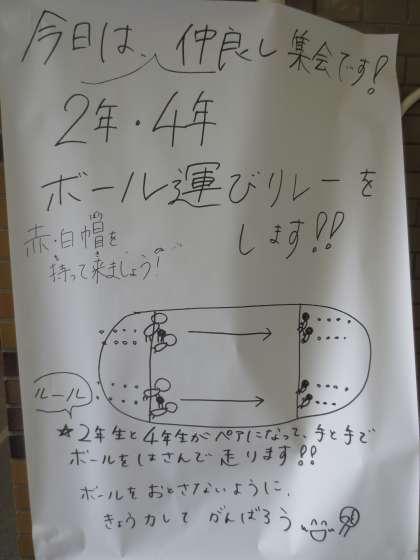 今日は、仲良し集会です!
2年・4年
ボール運びリレーを
します!!
赤・白帽を
持って来ましょう!
ルール
☆2年生と4年生がペアになって、手と手で
ボールをはさんで走ります!!
ボールをおとさないように、
きょう力してがんばろう